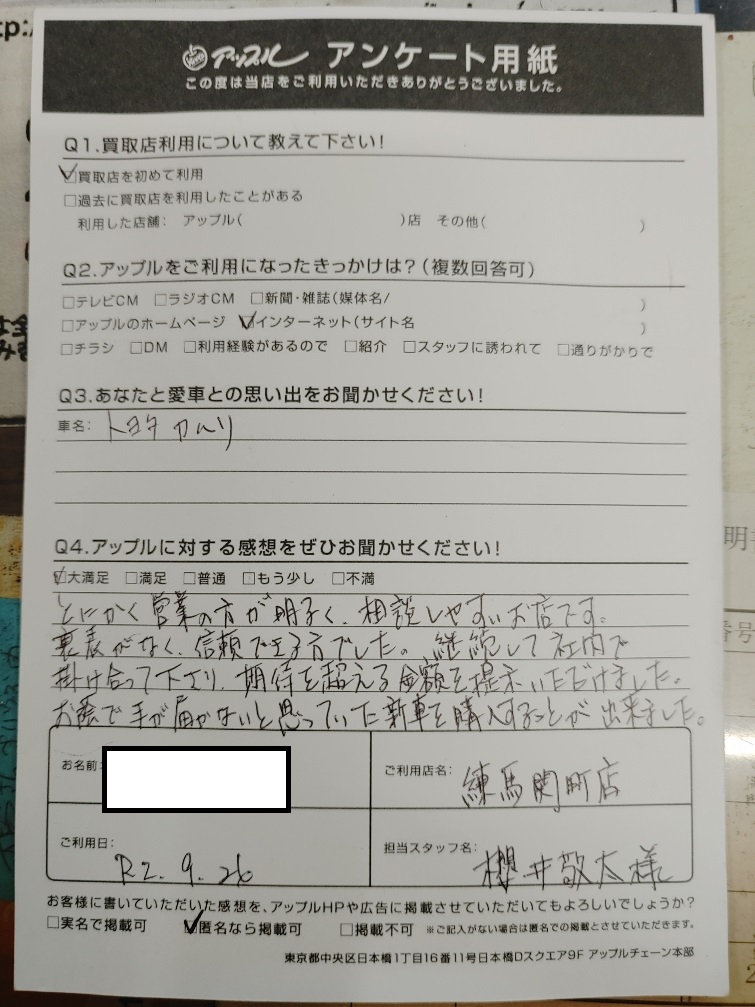 アップル アンケート用紙
この度は当店をご利用いただきありがとうございました。
Q1.買取店利用について教えて下さい!
☑買取店を初めて利用
□過去に買取店を利用したことがある
利用した店舗: アップル( )店 その他( )
Q2.アップルをご利用になったきっかけは?(複数回答可)
□テレビCM □ラジオCM □新聞・雑誌(媒体名/ )
□アップルのホームページ ☑インターネット(サイト名 )
□チラシ □DM □利用経験があるので □紹介 □スタッフに誘われて □通りがかりで
Q3.あなたと愛車との思い出をお聞かせください!
車名: トヨタ カムリ
Q4.アップルに対する感想をぜひお聞かせください!
☑大満足 □満足 □普通 □もう少し □不満
とにかく営業の方が明るく、相談しやすいお店です。
裏表がなく、信頼できる方でした。継続して社内で
掛け合って下さり、期待を超える金額を提示いただけました。
お蔭で手が届かないと思っていた新車を購入することが出来ました。
お名前:
ご利用店名: 練馬関町店
ご利用日: R2.9.26
担当スタッフ名: 櫻井敬太様
お客様に書いていただいた感想を、アップルHPや広告に掲載させていただいてもよろしいでしょうか?
□実名で掲載可 ☑匿名なら掲載可 □掲載不可 ※ご記入がない場合は匿名での掲載とさせていただきます。
東京都中央区日本橋1丁目16番11号日本橋Dスクエア9F アップルチェーン本部